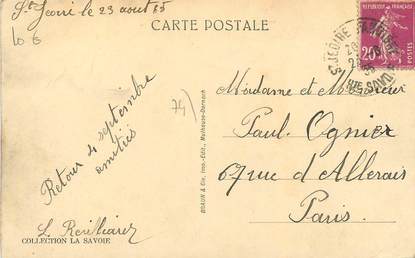 St Jeoire le 23 aout 35
CARTE POSTALE
Retour 4 septembre
amitiés
COLLECTION LA SAVOIE
74)
BRAUN & Cie, Imp.-Edit., Mulhouse-Dornach
REPUBLIQUE FRANÇAISE
20c
POSTES
Hte SAVOIE
Madame et Monsieur
Paul Ognier
67 rue d'Allerais
Paris